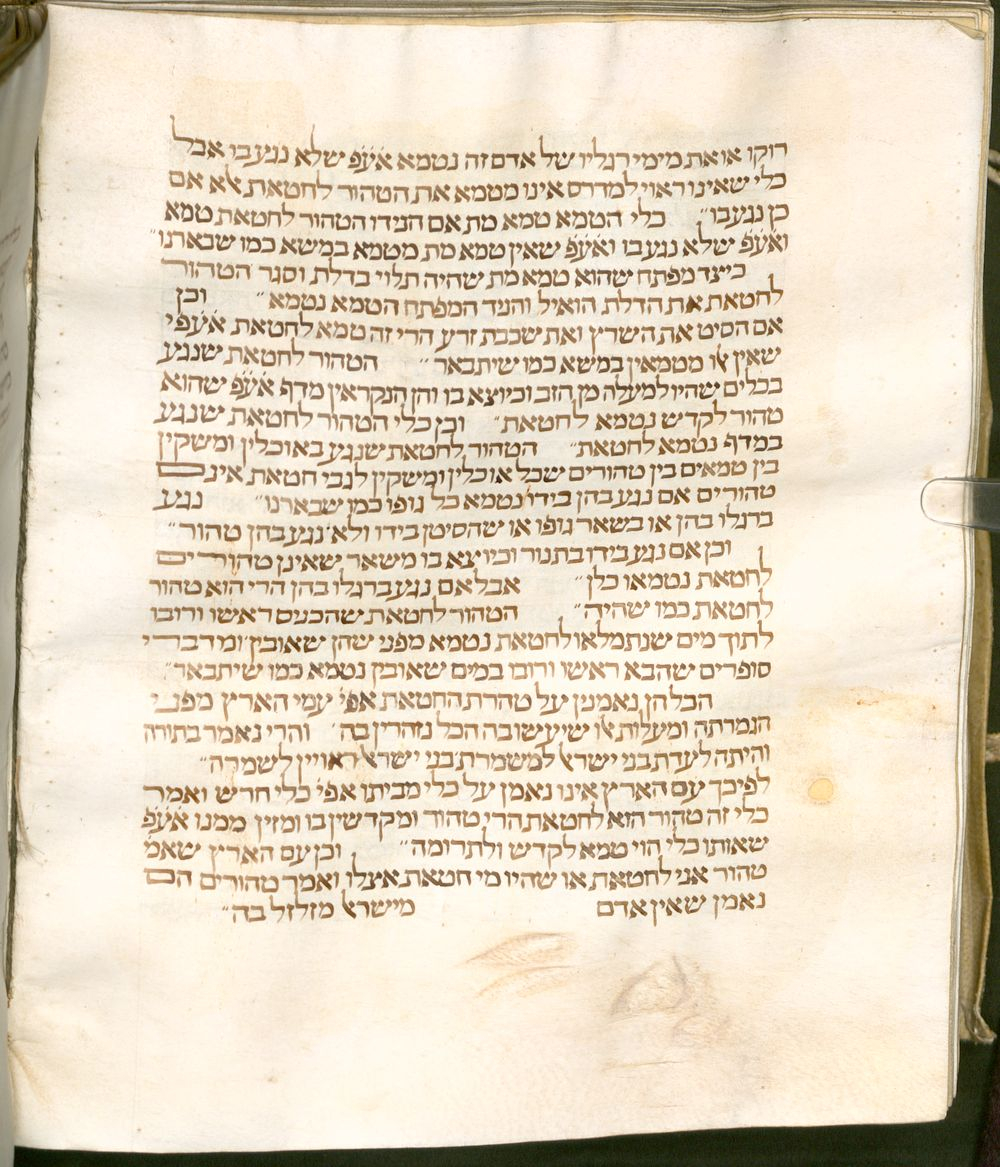 רוקו או את מימי רגליו של אדם זה נטמא אע׳פ׳ שלא נגע בו אבל
כלי שאינו ראוי למדרס אינו מטמא את הטהור לחטאת אלא אם
כן נגע בו״ כלי הטמא טמא מת אם הנידו הטהור לחטאת טמא
ואע׳פ׳ שלא נגע בו ואע׳פ׳ שאין טמא מת מטמא במשא כמו שבארנו״
כיצד מפתח שהוא טמא מת שהיה תלוי בדלת וסגר הטהור
לחטאת את הדלת הואיל והניד המפתח הטמא נטמא״ וכן
אם הסיט את השרץ ואת שכבת זרע הרי זה טמא לחטאת אע׳פ׳י
שאין אלו מטמאין במשא כמו שיתבאר״ הטהור לחטאת שנגע
בכלים שהיו למעלה מן הזב וכיוצא בו והן הנקראין מדף אע׳פ׳ שהוא
טהור לקדש נטמא לחטאת״ וכן כלי הטהור לחטאת שנגע
במדף נטמא לחטאת״ הטהור לחטאת שנגע באוכלין ומשקין
בין טמאים בין טהורים שכל אוכלין ומשקין לגבי חטאת אינם
טהורים אם נגע בהן בידו נטמא כל גופו כמו שבארנו״ נגע
ברגלו בהן או בשאר גופו או שהסיטן בידו ולא נגע בהן טהור״
וכן אם נגע בידו בתנור וכיוצא בו משאר שאינן טהורים
לחטאת נטמאו כלן״ אבל אם נגע ברגלו בהן הרי הוא טהור
לחטאת כמו שהיה״ הטהור לחטאת שהכניס ראשו ורובו
לתוך מים שנתמלאו לחטאת נטמא מפני שהן שאובין ומדברי
סופרים שהבא ראשו ורובו במים שאובין נטמא כמו שיתבאר״
הכל הן נאמנין על טהרת החטאת אפי׳ עמי הארץ מפני
חומרתה ומעלות אלו שיעשו בה הכל נזהרין בה׳ והרי נאמר בתורה
והיתה לעדת בני ישראל למשמרת בני ישראל ראויין לשמרה״
לפיכך עם הארץ אינו נאמן על כלי מביתו אפי׳ כלי חרש ואמר
כלי זה טהור הוא לחטאת הרי טהור ומקדשין בו ומזין ממנו אע׳פ׳
שאותו כלי הוי טמא לקדש ולתרומה״ וכן עם הארץ שאמ׳
טהור אני לחטאת או שהיו מי חטאת אצלו ואמר טהורים הם
נאמן שאין אדם מישראל מזלזל בה״